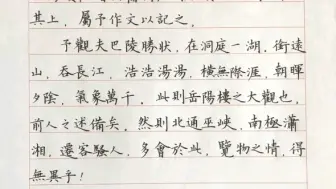 其上，屬予作文以記之。
予觀夫巴陵勝狀，在洞庭一湖，銜遠
山，吞長江，浩浩湯湯，橫無際涯，朝暉
夕陰，氣象萬千，此則岳陽樓之大觀也，
前人之述備矣，然則北通巫峽，南極瀟
湘，遷客騷人，多會於此，覽物之情，得
無異乎！